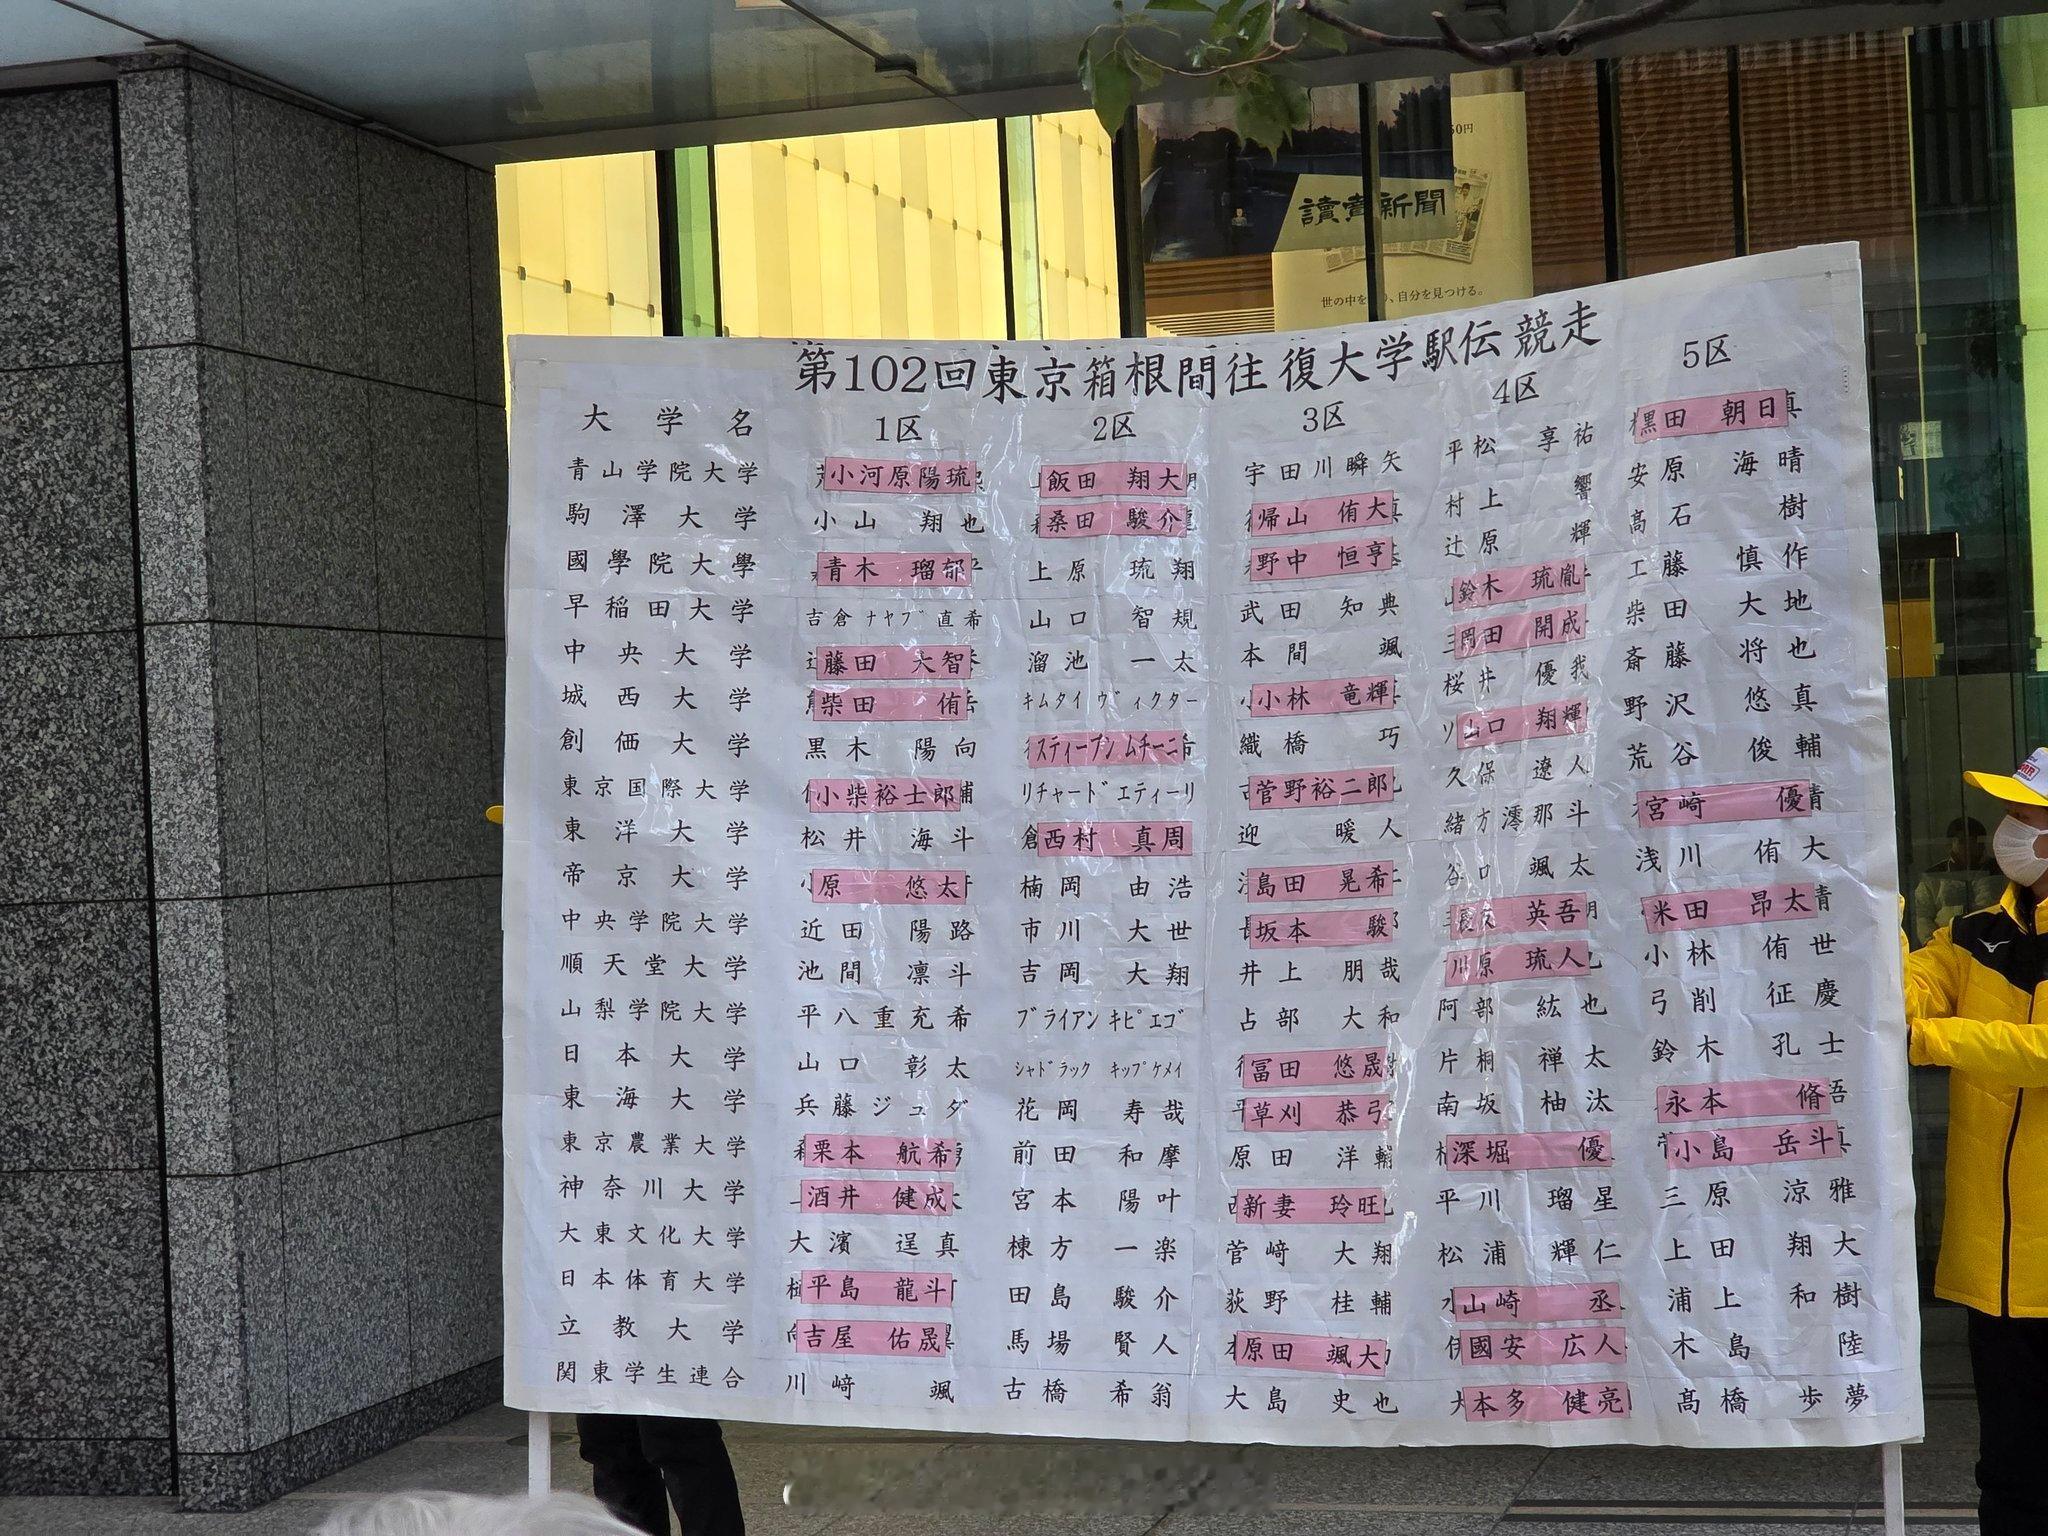 50円
讀賣新聞
世の中を 、自分を見つける。
第102回東京箱根間往復大学駅伝競走
大学名 1区 2区 3区 4区 5区
青山学院大学 小河原陽琉 飯田 翔大 宇田川瞬矢 平松 享祐 黒田 朝日
駒澤大学 小山 翔也 桑田 駿介 帰山 侑大 村上 響 安原 海晴
國學院大學 青木 瑠郁 上原 琉翔 野中 恒亨 辻原 輝 髙石 樹
早稲田大学 吉倉ナヤブ直希 山口 智規 武田 知典 鈴木 琉胤 工藤 慎作
中央大学 藤田 大智 溜池 一太 本間 颯 岡田 開成 柴田 大地
城西大学 柴田 侑 キムタイ ヴィクター 小林 竜輝 桜井 優我 斎藤 将也
創価大学 黒木 陽向 スティーブン ムチーニ 織橋 巧 山口 翔輝 野沢 悠真
東京国際大学 小柴裕士郎 リチャード エティーリ 菅野裕二郎 久保 遼人 荒谷 俊輔
東洋大学 松井 海斗 西村 真周 迎 暖人 緒方澪那斗 宮崎 優
帝京大学 原 悠太 楠岡 由浩 島田 晃希 谷口 颯太 浅川 侑大
中央学院大学 近田 陽路 市川 大世 坂本 駿 長友 英吾 米田 昂太
順天堂大学 池間 凛斗 吉岡 大翔 井上 朋哉 川原 琉人 小林 侑世
山梨学院大学 平八重充希 ブライアン キピエゴ 占部 大和 阿部 紘也 弓削 征慶
日本大学 山口 彰太 シャドラック キップケメイ 冨田 悠晟 片桐 禅太 鈴木 孔士
東海大学 兵藤ジュダ 花岡 寿哉 草刈 恭弓 南坂 柚汰 永本 脩
東京農業大学 栗本 航希 前田 和摩 原田 洋輔 深堀 優 小島 岳斗
神奈川大学 酒井 健成 宮本 陽叶 新妻 玲旺 平川 瑠星 三原 涼雅
大東文化大学 大濱 逞真 棟方 一楽 菅﨑 大翔 松浦 輝仁 上田 翔大
日本体育大学 平島 龍斗 田島 駿介 荻野 桂輔 山崎 丞 浦上 和樹
立教大学 吉屋 佑晟 馬場 賢人 原田 颯大 國安 広人 木島 陸
関東学生連合 川﨑 颯 古橋 希翁 大島 史也 本多 健亮 髙橋 歩夢